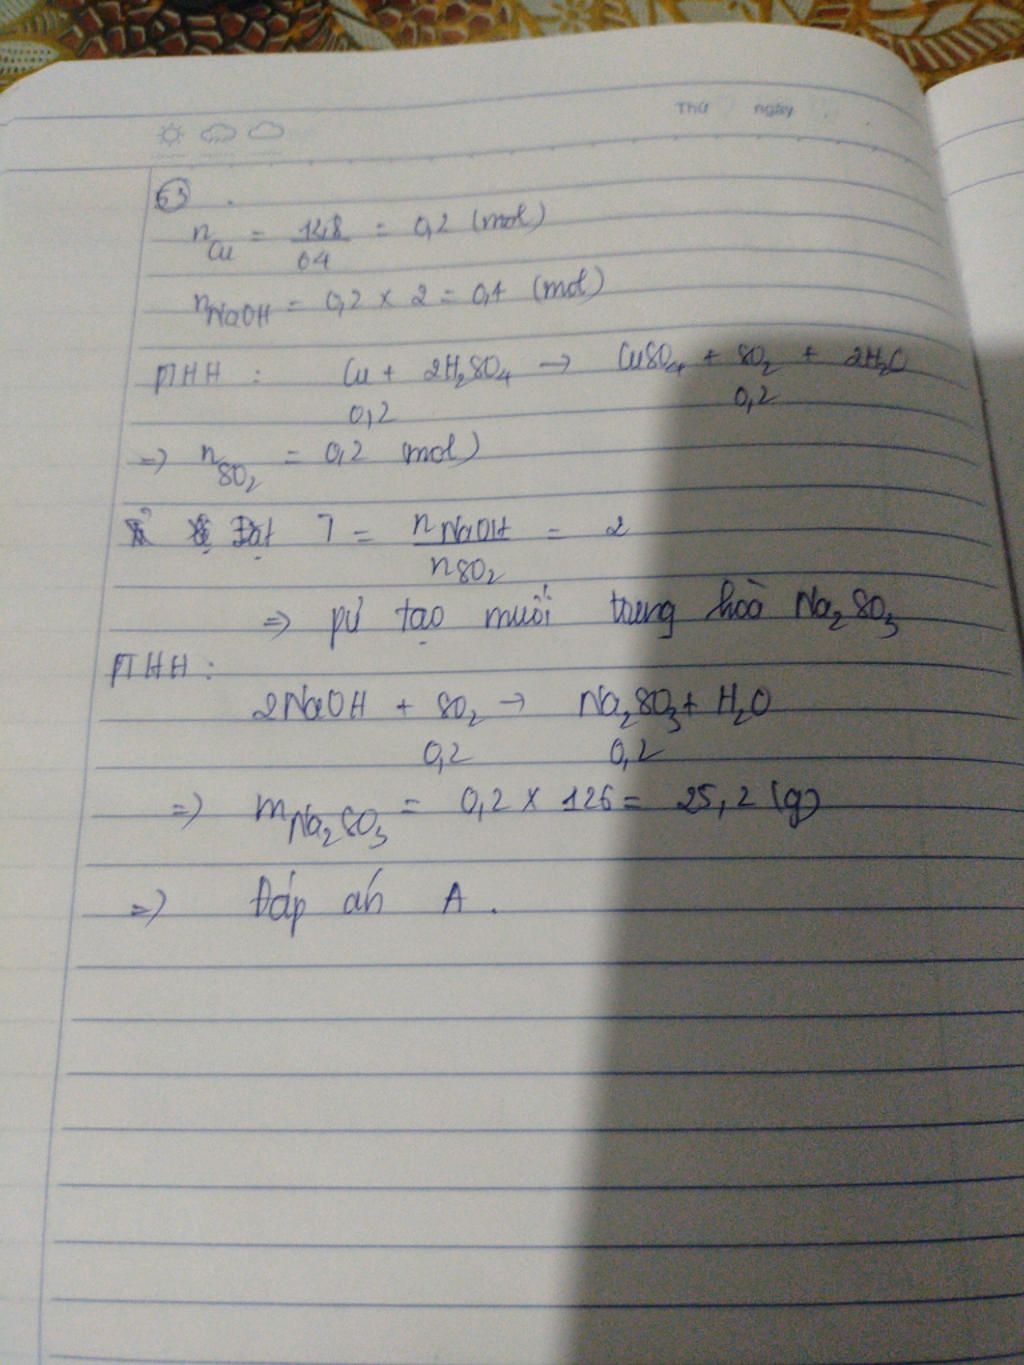 Thứ ngày
63.
n Cu = 12,8/64 = 0,2 (mol)
n NaOH = 0,2 x 2 = 0,4 (mol)
PTHH : Cu + 2H₂SO₄ → CuSO₄ + SO₂ + 2H₂O
0,2 0,2
=> n SO₂ = 0,2 (mol)
Đặt T = n NaOH / n SO₂ = 2
=> pứ tạo muối trung hoà Na₂SO₃
PTHH :
2NaOH + SO₂ → Na₂SO₃ + H₂O
0,2 0,2
=> m Na₂SO₃ = 0,2 x 126 = 25,2 (g)
=> Đáp án A.